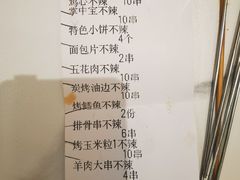 鸡心不辣
10串
掌中宝不辣
10串
特色小饼不辣
4个
面包片不辣
2串
五花肉不辣
10串
炭烤油边不辣
10串
烤鱿鱼不辣
2份
排骨串不辣
6串
烤玉米粒1不辣
10串
羊肉大串不辣
4串